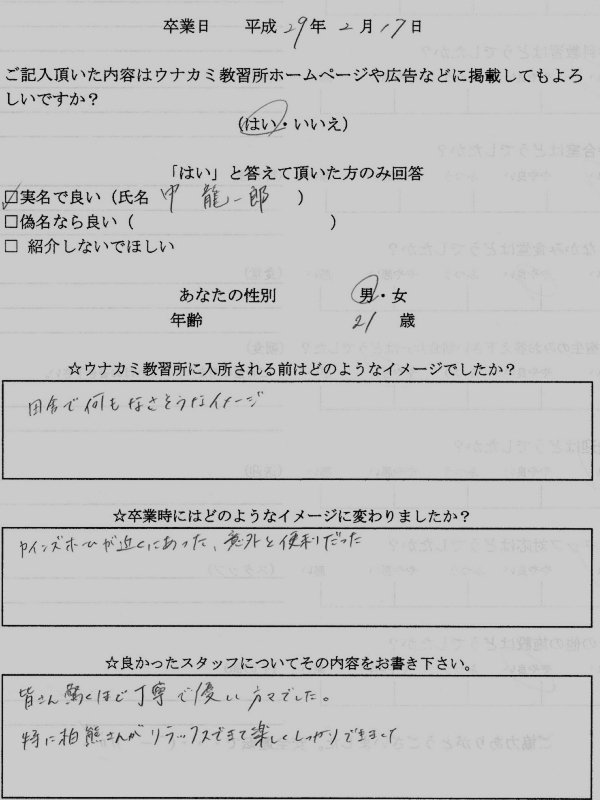 卒業日 平成 29年 2月 17日
ご記入頂いた内容はウナカミ教習所ホームページや広告などに掲載してもよろ
しいですか？
(はい・いいえ)
「はい」と答えて頂いた方のみ回答
☑実名で良い（氏名 中 龍一郎 ）
□偽名なら良い（ ）
□ 紹介しないでほしい
あなたの性別 男・女
年齢 21 歳
☆ウナカミ教習所に入所される前はどのようなイメージでしたか？
田舎で何もなさそうなイメージ
☆卒業時にはどのようなイメージに変わりましたか？
カインズホームが近くにあった、意外と便利だった
☆良かったスタッフについてその内容をお書き下さい。
皆さん驚くほど丁寧で優しい方々でした。
特に柏熊さんがリラックスできて楽しくしっかりできました